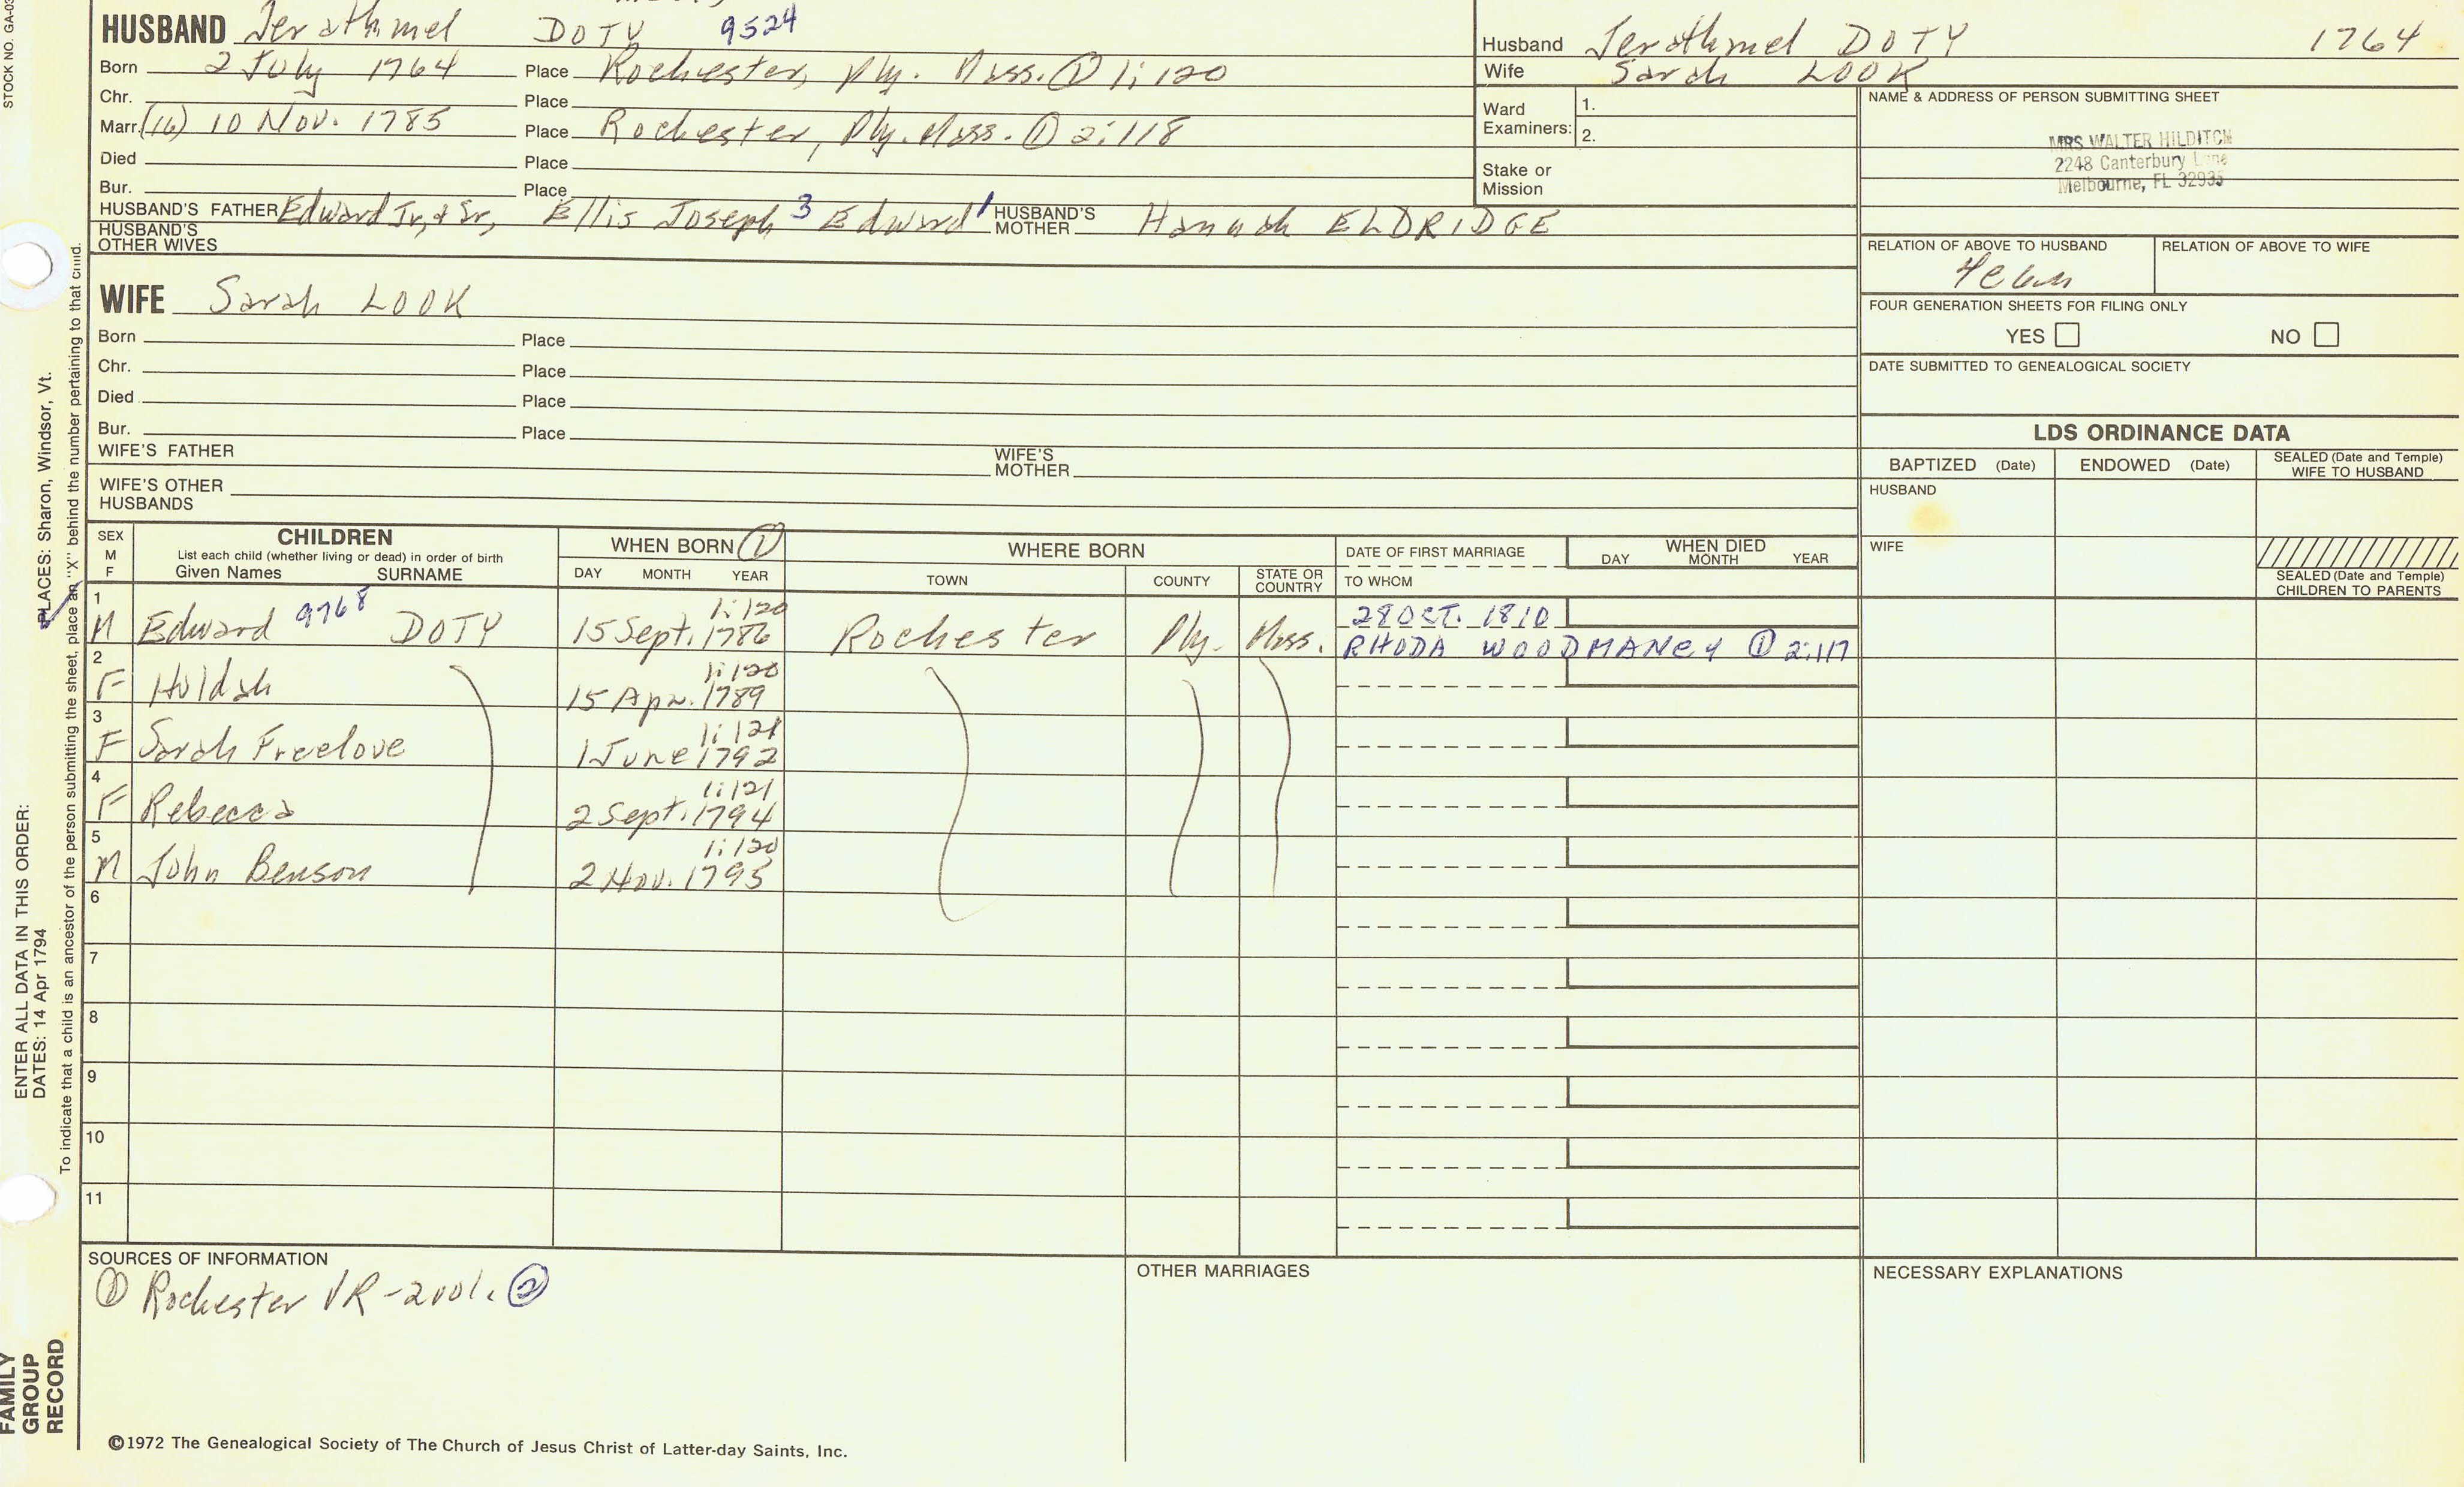 STOCK NO. GA-03
HUSBAND Jerathmel DOTY 9524
Born 2 July 1764 Place Rochester, Ply. Mass. ① 1:120
Chr. Place
Marr. (16) 10 Nov. 1785 Place Rochester, Ply. Mass. ① 2:118
Died Place
Bur. Place
HUSBAND'S FATHER Edward Jr, & Sr, Ellis Joseph 3 Edward 1 HUSBAND'S MOTHER Hannah ELDRIDGE
HUSBAND'S OTHER WIVES
Husband Jerathmel DOTY 1764
Wife Sarah LOOK
Ward Examiners: 1.
2.
Stake or Mission
NAME & ADDRESS OF PERSON SUBMITTING SHEET
MRS WALTER HILDITCH
2248 Canterbury Lane
Melbourne, FL 32935
RELATION OF ABOVE TO HUSBAND RELATION OF ABOVE TO WIFE
FOUR GENERATION SHEETS FOR FILING ONLY
YES NO
DATE SUBMITTED TO GENEALOGICAL SOCIETY
WIFE Sarah LOOK
Born Place
Chr. Place
Died Place
Bur. Place
WIFE'S FATHER WIFE'S MOTHER
WIFE'S OTHER HUSBANDS
LDS ORDINANCE DATA
BAPTIZED (Date) ENDOWED (Date) SEALED (Date and Temple) WIFE TO HUSBAND
HUSBAND
WIFE
SEALED (Date and Temple) CHILDREN TO PARENTS
SEX M F CHILDREN WHEN BORN ① WHERE BORN DATE OF FIRST MARRIAGE WHEN DIED
List each child (whether living or dead) in order of birth
Given Names SURNAME DAY MONTH YEAR TOWN COUNTY STATE OR COUNTRY TO WHOM DAY MONTH YEAR
1 M Edward 9768 DOTY 1:120 15 Sept. 1786 Rochester Ply. Mass. 28 OCT. 1810
RHODA WOODMANCY ① 2:117
2 F Huldah 1:120 15 Apr. 1789
3 F Sarah Freelove 1:121 1 June 1792
4 F Rebecca 1:121 2 Sept. 1794
5 M John Benson 1:120 2 Nov. 1795
6
7
8
9
10
11
SOURCES OF INFORMATION
① Rochester VR - 2 vol. ②
OTHER MARRIAGES
NECESSARY EXPLANATIONS
©1972 The Genealogical Society of The Church of Jesus Christ of Latter-day Saints, Inc.
ENTER ALL DATA IN THIS ORDER:
DATES: 14 Apr 1794
PLACES: Sharon, Windsor, Vt.
To indicate that a child is an ancestor of the person submitting the sheet, place an "X" behind the number pertaining to that child.
FAMILY
GROUP
RECORD